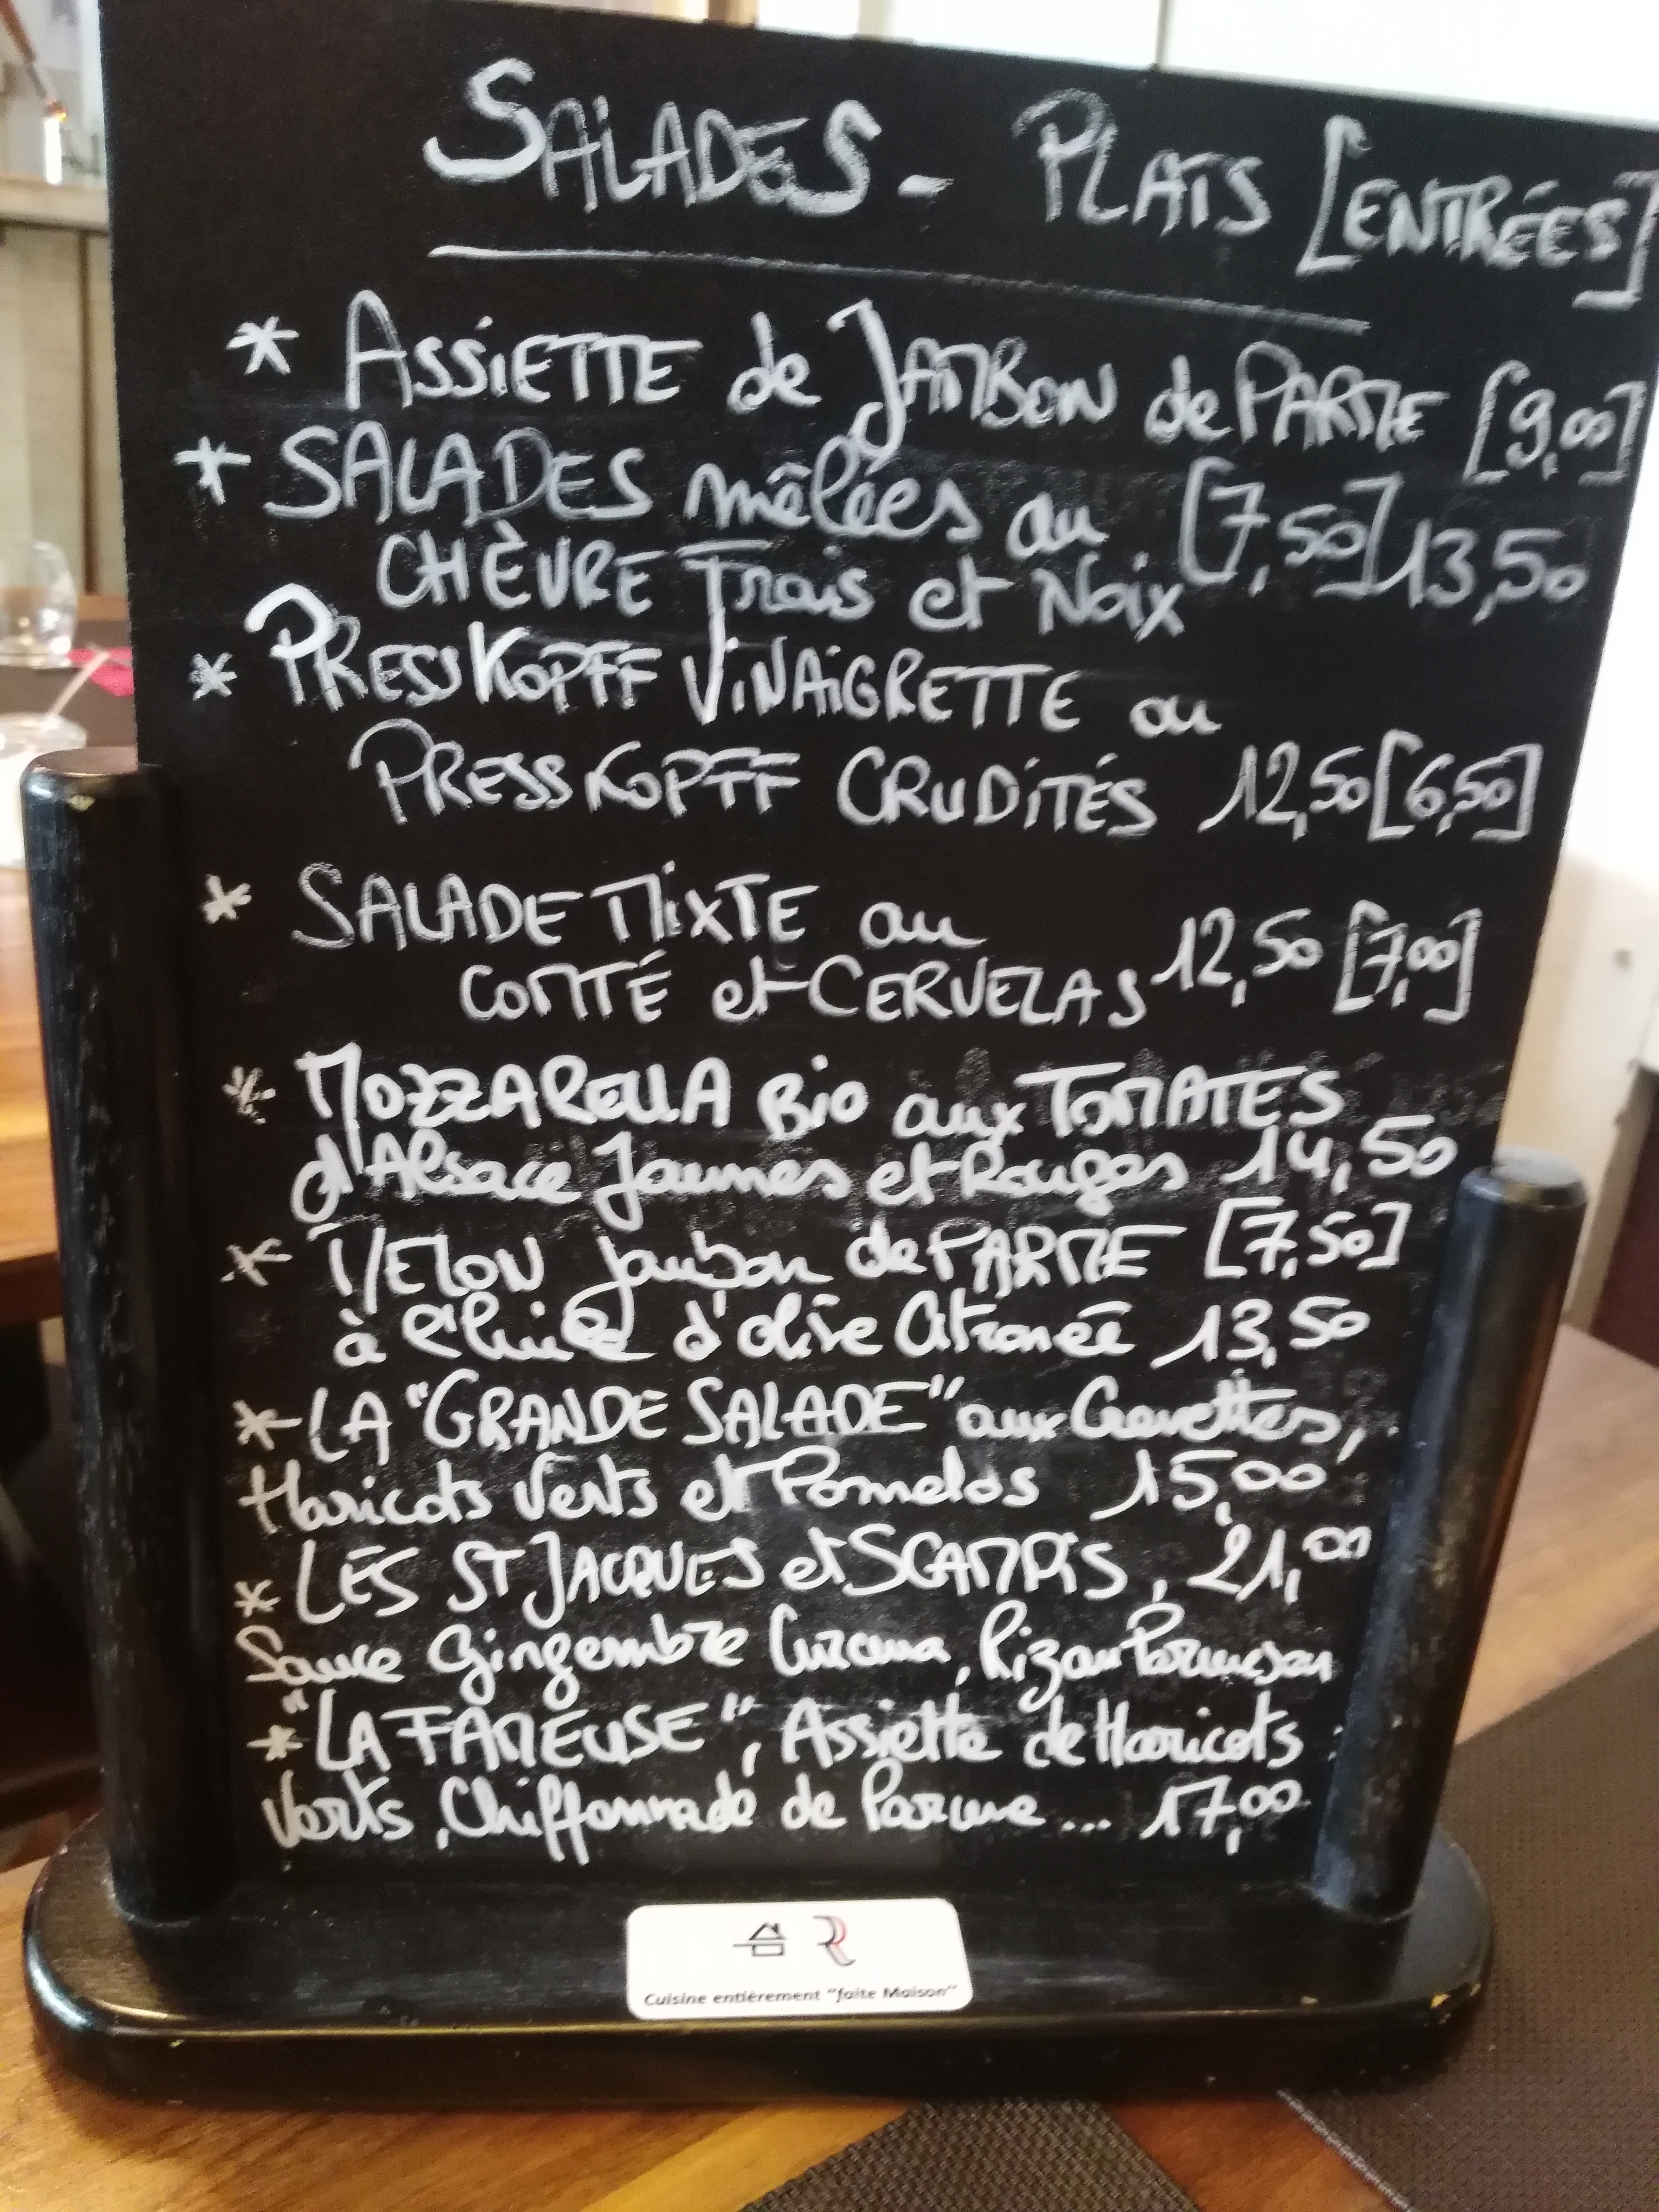 SALADES - PLATS [ENTRÉES]
* ASSIETTE de JAMBON de PARME [9,00]
* SALADES mêlées au [7,50] 13,50
CHÈVRE Frais et Noix
* PRESSKOPFF VINAIGRETTE ou
PRESSKOPFF CRUDITÉS 12,50 [6,50]
* SALADE MIXTE au
COMTÉ et CERVELAS 12,50 [7,00]
* MOZZARELLA Bio aux TOMATES
d'Alsace Jaunes et Rouges 14,50
* MELON jambon de PARME [7,50]
à l'huile d'olive citronée 13,50
* LA "GRANDE SALADE" aux Crevettes,
Haricots Verts et Pomelos 15,00
* LES ST JACQUES et SCAMPIS, 21,00
Sauce Gingembre Curcuma, Riz au Parmesan
* "LA FAMEUSE", Assiette de Haricots
Verts, Chiffonnade de Parme ... 17,00
Cuisine entièrement "faite Maison"